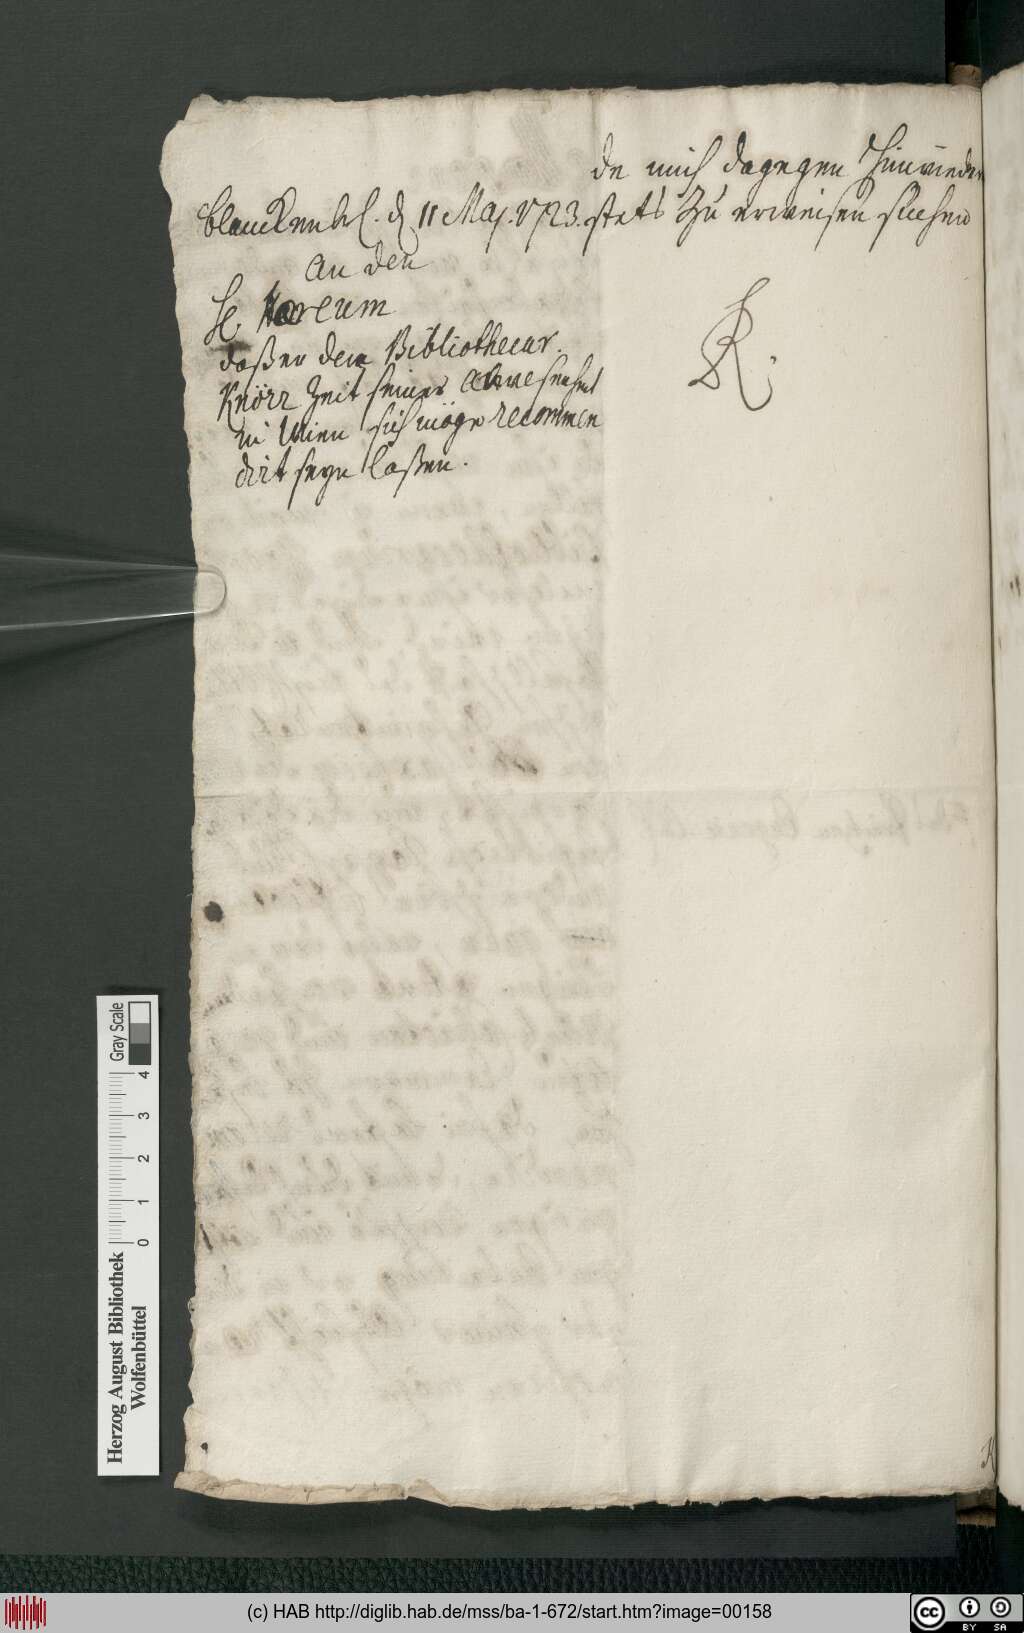 de mich dagegen hinwieder
stets zu erweisen suchen
Blanckenb. d. 11 Maj. 1723.
An den
H. 
daßer dem Bibliothecar.
Knörr Zeit seiner Abwesenheit
in Wien sich möge recommen
dirt seyn laßen.
R.
Herzog August Bibliothek
Wolfenbüttel
0 1 2 3 4
Gray Scale
(c) HAB http://diglib.hab.de/mss/ba-1-672/start.htm?image=00158
cc BY SA